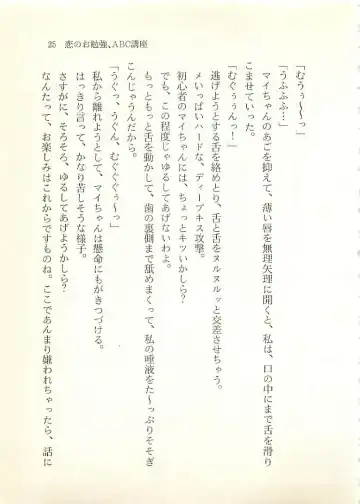 25　恋のお勉強、ABC講座
「むうぅ〜〜っ」
「うふふふ…」
マイちゃんのあごを抑えて、薄い唇を無理矢理に開くと、私は、口の中にまで舌を滑り
こませていった。
「むぐぅぅんっ！」
逃げようとする舌を絡めとり、舌と舌をヌルヌルッと交差させちゃう。
メいっぱいハードな、ディープキス攻撃。
初心者のマイちゃんには、ちょっとキツいかしら？
でも、この程度じゃゆるしてあげないわよ。
もっともっと舌を動かして、歯の裏側まで舐めまくって、私の唾液をた〜っぷりそそぎ
こんじゃうんだから。
「うぐっ、うぐん、むぐぐぅ〜っ」
私から離れようとして、マイちゃんは懸命にもがきつづける。
はっきり言って、かなり苦しそうな様子。
さすがに、そろそろ、ゆるしてあげようかしら？
なんたって、お楽しみはこれからですものね。ここであんまり嫌われちゃったら、話に